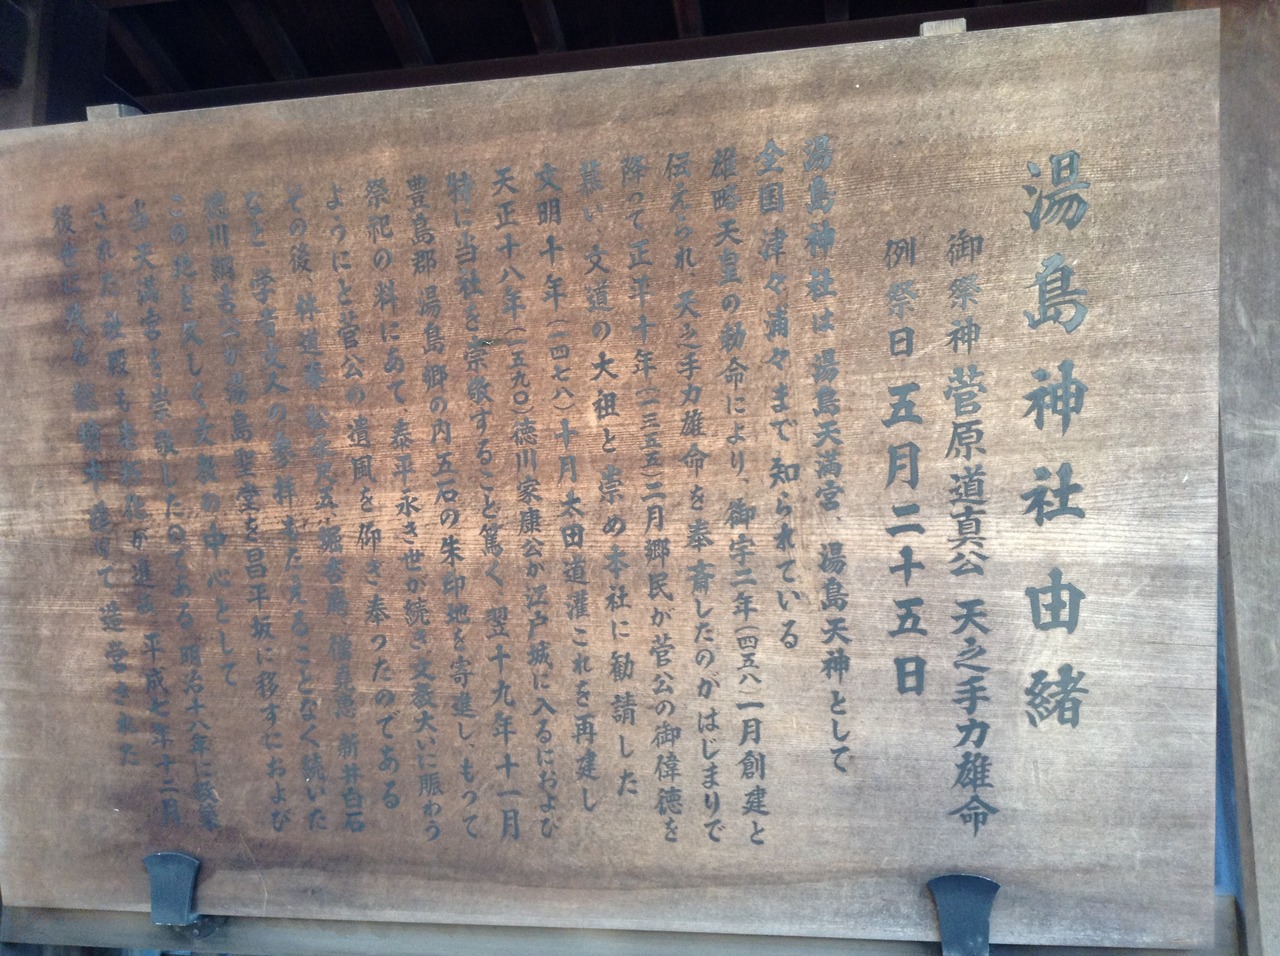 湯島神社由緒
御祭神 菅原道真公 天之手力雄命
例祭日 五月二十五日
湯島神社は 湯島天満宮、湯島天神として
全国 津々浦々まで 知られている
雄略天皇の勅命により、御宇二年(四五八)一月創建と
伝えられ、天之手力雄命を奉斎したのがはじまりで
降って正平十年(一三五五)二月郷民が菅公の御偉徳を
慕い、文道の大祖と崇め本社に勧請した
文明十年(一四七八)十月太田道灌これを再建し
天正十八年(一五九〇)徳川家康公が江戸城に入るにおよび
特に当社を崇敬すること篤く 翌十九年十一月
豊島郡 湯島郷の内 五石の朱印地を寄進し、もって
祭祀の料にあて 泰平永き世が続き 文教大いに賑わう
ようにと菅公の 遺風を仰ぎ奉ったのである
その後、林道春 松永尺五 堀杏庵 僧 新井白石
など 学者文人の参拝もたえることなく続いた
徳川綱吉公が湯島聖堂を昌平坂に移すにおよび
この地を久しく文教の中心として
当天満宮を崇敬したのである 明治十八年に改築
された社殿も老朽化が進み 平成七年十二月
後世に残る総檜 造りで造営された